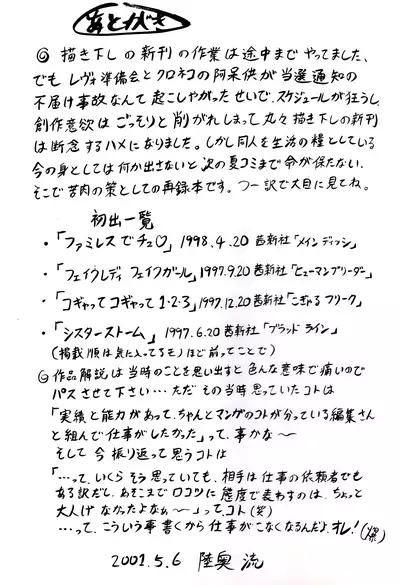 あとがき
◎ 描き下しの新刊の作業は途中までやってました、
でもレヴォ準備会とクロネコの阿呆供が当選通知の
不届け事故なんて起こしやがったせいで、スケジュールが狂うし
創作意欲はごっそりと削がれしまって丸々描き下しの新刊
は断念するハメになりました。しかし同人を生活の糧としている
今の身としては何か出さないと次の夏コミまで命が保たない、
そこで苦肉の策としての再録本です。つー訳で大目に見てね。
初出一覧
・「ファミレスでチュ♡」 1998.4.20 茜新社「メインディッシュ」
・「フェイクレディ フェイクガール」1997.9.20 茜新社「ヒューマンブリーダー」
・「コギャってコギャって1・2・3」1997.12.20 茜新社「こぎゃるフリーク」
・「シスターストーム」 1997.6.20 茜新社「ブラッドライン」
(掲載順は気に入ってるモノほど前ってことで)
◎作品解説は当時のことを思い出すと色んな意味で痛いので
パスさせて下さい…ただその当時思っていたコトは
「実績と能力があって、ちゃんとマンガのコトが分っている編集さん
と組んで仕事がしたかった」って、事かな〜
そして今振り返って思うコトは
「…って、いくらそう思っていても、相手は仕事の依頼者でも
ある訳だし、あそこまでロコツに態度で表わすのは、ちょっと
大人げなかったよなぁ〜」って、コト(笑)
…って、こういう事書くから仕事がこなくなるんだよ、オレ!(爆)
2001.5.6 陸奥 流